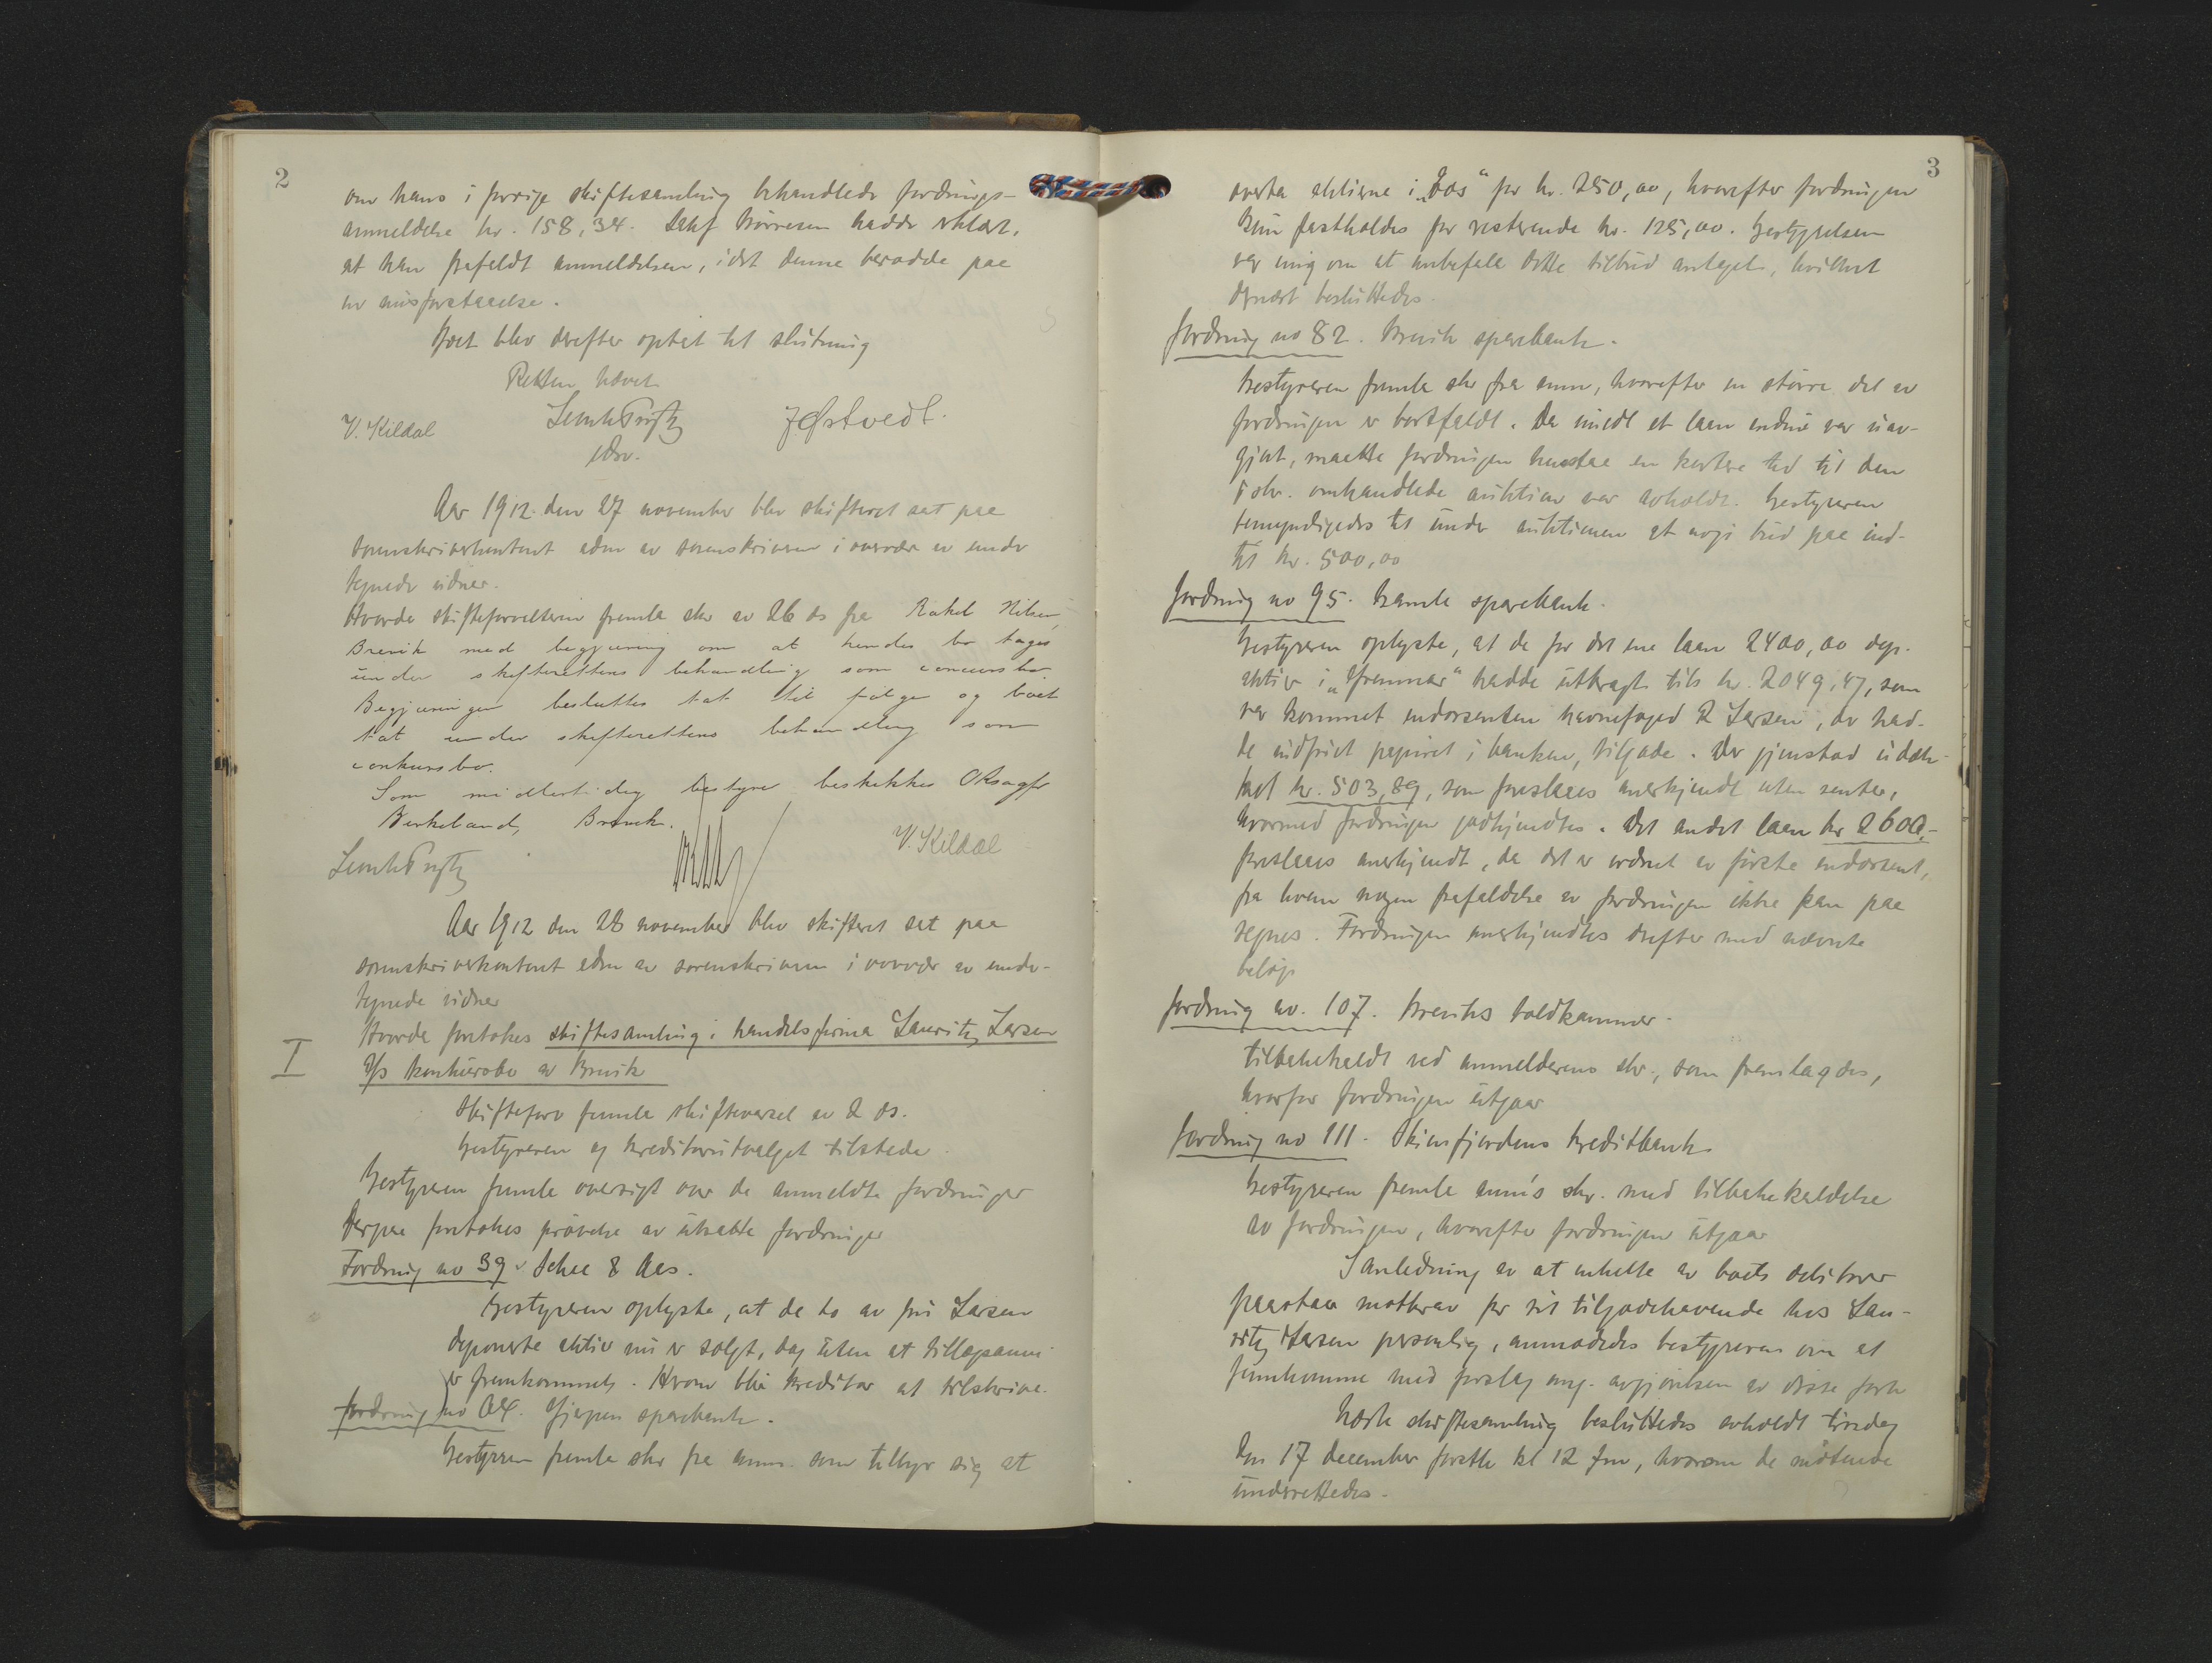 2
om hans i forrige skiftesamling behandlede fordrings-
anmeldelse kr. 158,34. Sakf hadde erklært,
at han frafaldt anmeldelsen, idet denne beroede paa
en misforstaaelse.
Boet blev derefter optat til slutning
Retten hævet
V. Kildal
J Østvedt.
edsv.
Aar 1912 den 27 november blev skifteret sat paa
sorenskriverkontoret adm av sorenskriveren i overvær av under
tegnede vidner.
Hvorda skifteforvalteren fremla skr av 26 ds fra Rakel Nilsen,
Brevik med begjæring om at hendes bo tages
under skifterettens behandling som concursbo.
Begjæringen besluttes tat til følge og boet
tat under skifterettens behandling som
conkursbo.
Som midlertidig bestyrer beskikkes ORsagfr
Birkeland, Brevik.
V. Kildal
Aar 1912 den 28 november blev skifteret sat paa
sorenskriverkontoret adm av sorenskriveren i overvær av under-
tegnede vidner
I
Hvorda foretokes skiftesamling i handelsfirma Lauritz Larsen
konkursbo av Brevik
Skifteforv fremla skiftevarsel av 2 ds.
Bestyreren og kreditorutvalget tilstede.
Bestyreren fremla oversigt over de anmeldte fordringer
Derpaa foretokes prøvelse av utsatte fordringer
Fordring no 39. &
Bestyreren oplyste, at de to av fru Larsen
deponerte aktier nu er solgt, dog uten at
er fremkommet. Hvorom blir kreditor at tilskrive.
fordring no Gjerpen sparebank.
Bestyreren fremla skr fra anm. som tilbyr sig at
3
overta aktierne i for kr. 250,00, hvorefter fordringen
kun fastholdes for resterende kr. 125,00. Bestyrelsen
var enig om at anbefale dette tilbud antaget, hvilket
dernæst besluttedes.
fordring no 82. Brevik sparebank.
Bestyreren fremla skr fra anm, hvorefter en større del av
fordringen er bortfaldt. Da imidl et laan endnu var uav-
gjort, maatte fordringen henstaa en kortere tid til den
i skr. omhandlede auktion var avholdt. Bestyreren
bemyndigedes til under auktionen at avgi bud paa ind-
til kr. 500,00
fordring no 95. Bamle sparebank.
Bestyreren oplyste, at de for det ene laan 2400,00 dep.
aktier i hadde utbragt tils kr. 2049,47, som
var kommet endorsenten havnefoged R Larsen, der had-
de indfriet papiret i banken, tilgode. Der gjenstod udæk-
ket kr. 503,89, som foreslaaes anerkjendt uten renter,
hvormed fordringen godkjendtes. Det andet laan kr 2600,-
foreslaaes anerkjendt, da det er ordnet av første endorsent,
fra hvem nogen frafaldelse av fordringen ikke kan paa
regnes. Fordringen anerkjendtes derefter med nævnte
beløp
fordring no. 107. Breviks toldkammer.
tilbakekaldt ved anmelderens skr., som fremlagdes,
hvorfor fordringen utgaar
fordring no 111. Skiensfjordens kreditbank.
Bestyreren fremla anm's skr. med tilbakekaldelse
av fordringen, hvorefter fordringen utgaar
I anledning av at enkelte av boets debitorer
paastaar motkrav for sit tilgodehavende hos Lau-
ritz Larsen personlig, anmodedes bestyreren om at
fremkomme med forslag ang. avgjørelsen av disse
Næste skiftesamling besluttedes avholdt tirsdag
den 17 december førstk kl 12 fm, hvorom de møtende
underrettedes.